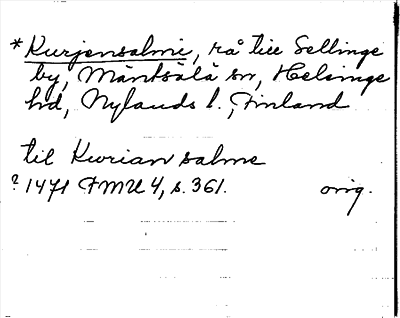 *Kurjensalmi, rå till Sellinge
by, Mäntsälä sn, Helsinge
hd, Nylands l., Finland
til Kurian salme
? 1471 FMU 4, s. 361. orig.